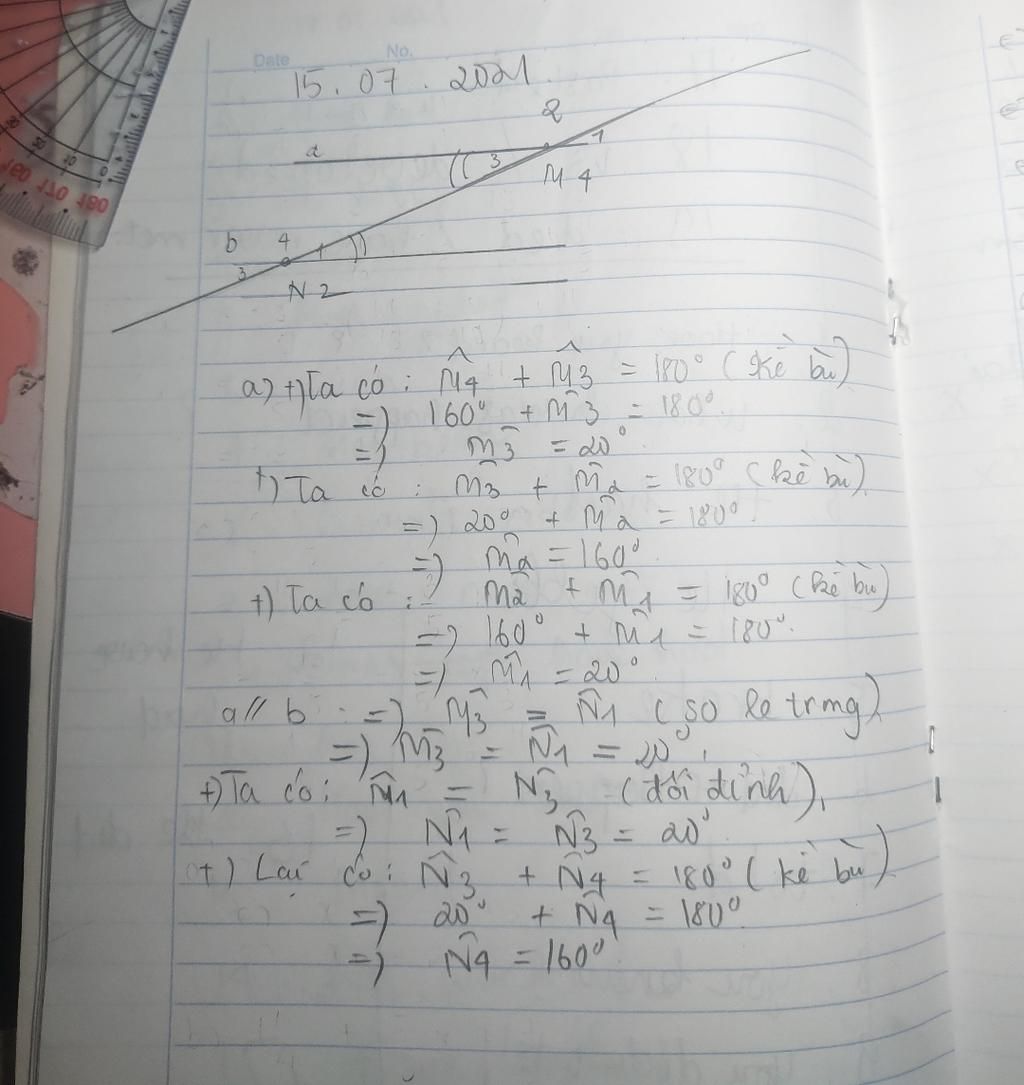 Date No.
15.07.2021
2
a 3 1
M 4
b 4 1
3
N 2
a) +) Ta có : M̂4 + M̂3 = 180° (kề bù)
=) 160° + M̂3 = 180°.
=) M̂3 = 20°
+) Ta có : M̂3 + M̂2 = 180° (kề bù)
=) 20° + M̂2 = 180°.
=) M̂2 = 160°
+) Ta có : M̂2 + M̂1 = 180° (kề bù)
=) 160° + M̂1 = 180°.
=) M̂1 = 20°
a // b =) M̂3 = N̂1 (so le trong)
=) M̂3 = N̂1 = 20°.
+) Ta có : N̂1 = N̂3 (đối đỉnh),
=) N̂1 = N̂3 = 20°
+) Lại có : N̂3 + N̂4 = 180° (kề bù)
=) 20° + N̂4 = 180°
=) N̂4 = 160°
160 170 180